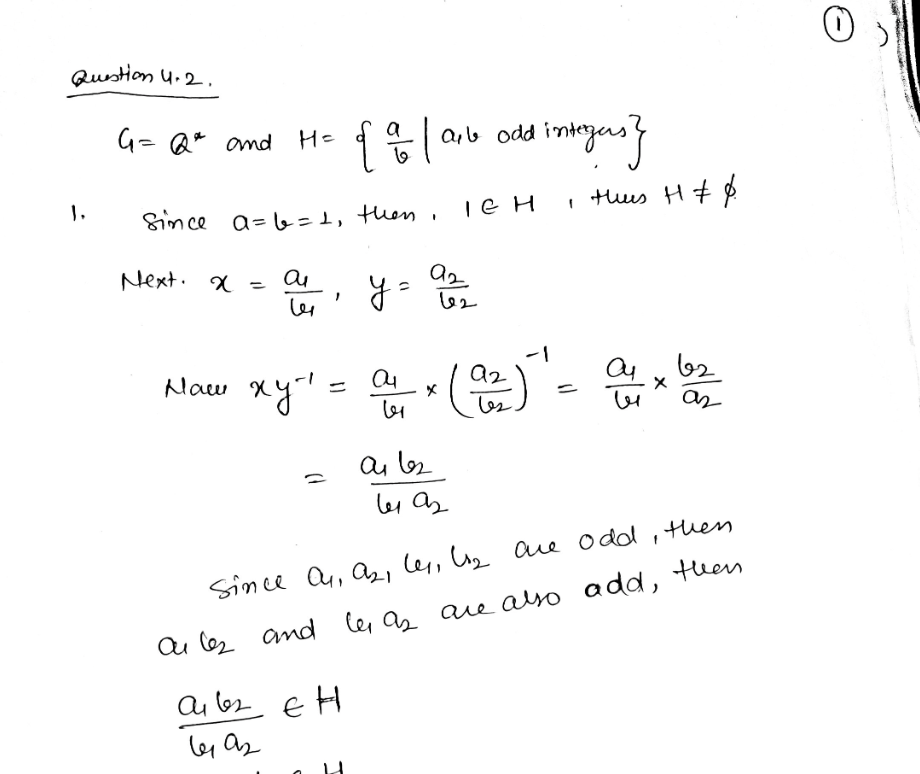 ①
Question 4.2.
G = Q* and H = { a/b | a,b odd integers }
1. Since a=b=1, then, 1 ∈ H, thus H ≠ ϕ.
Next. x = a₁/b₁, y = a₂/b₂
Now xy⁻¹ = a₁/b₁ × (a₂/b₂)⁻¹ = a₁/b₁ × b₂/a₂
= a₁b₂/b₁a₂
Since a₁, a₂, b₁, b₂ are odd, then
a₁b₂ and b₁a₂ are also add, then
a₁b₂/b₁a₂ ∈ H